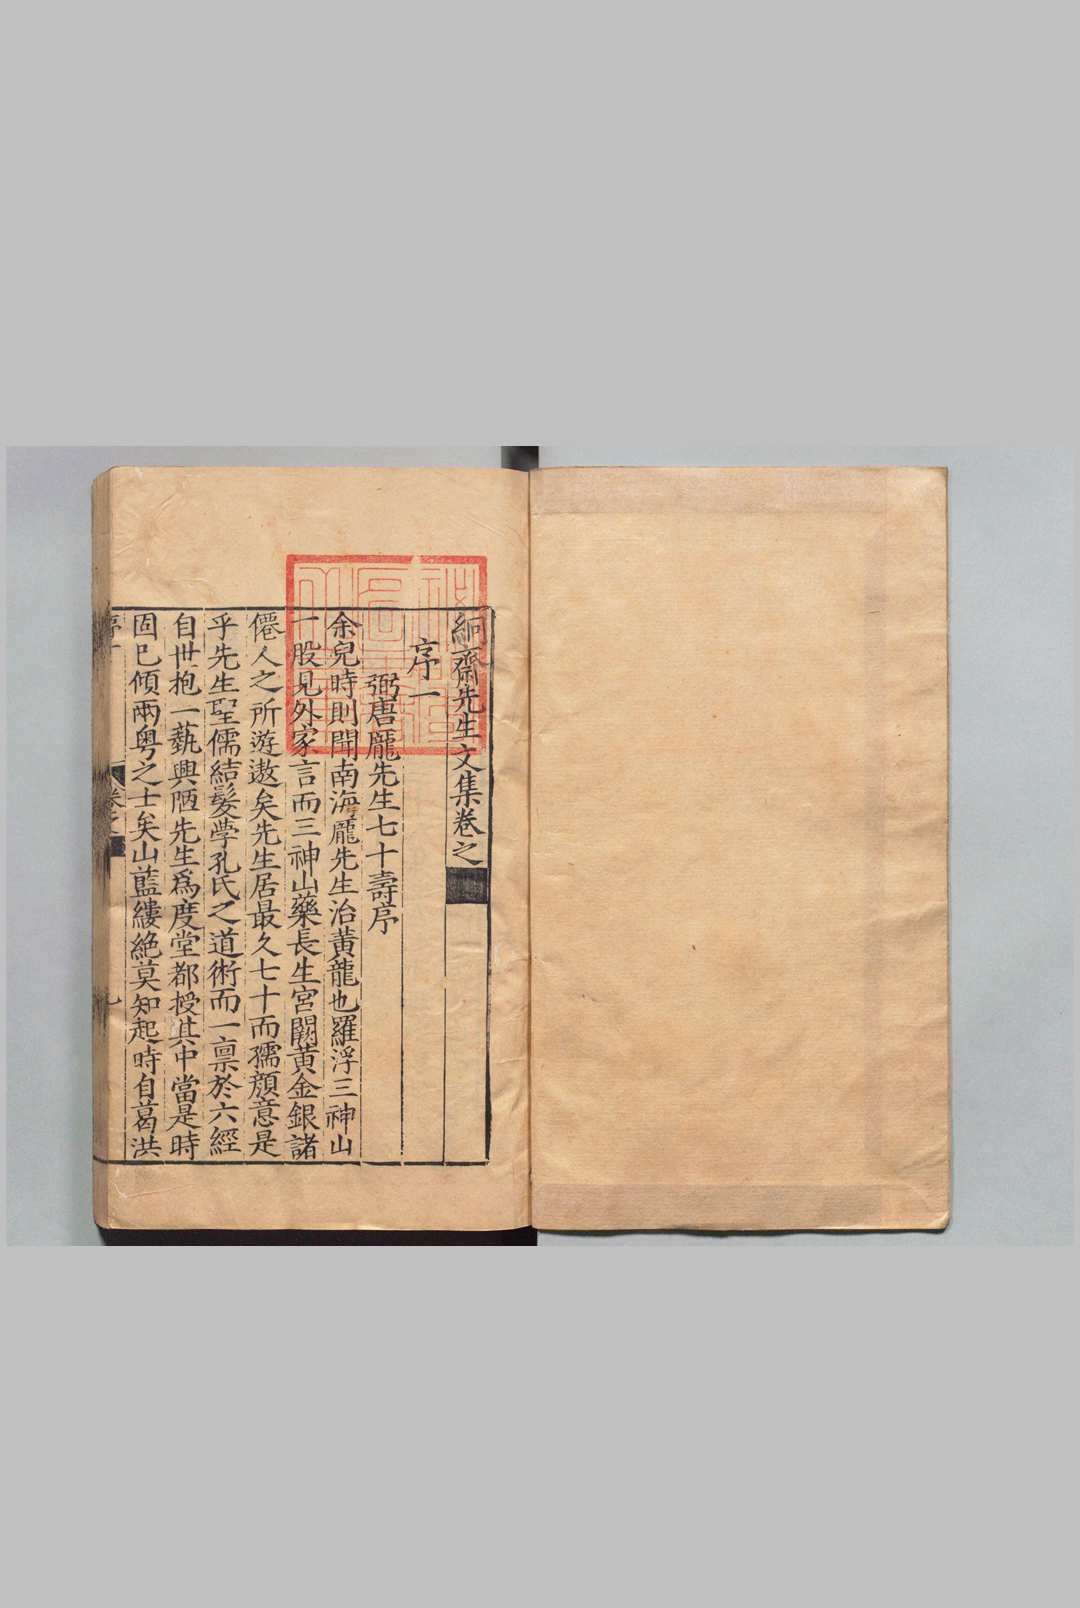 絅齋先生文集卷之
序一
弼唐龐先生七十壽序
余兒時則聞南海龐先生治黃龍也羅浮三神山
一股見外家言而三神山藥長生宮闕黃金銀諸
僊人之所游遨矣先生居最久七十而孺顏意是
乎先生聖儒結髮学孔氏之道術而一稟於六經
自丗抱一蓺興陋先生爲度堂都授其中當是時
固巳傾兩粤之士矣山藍縷絶莫知起時自葛洪